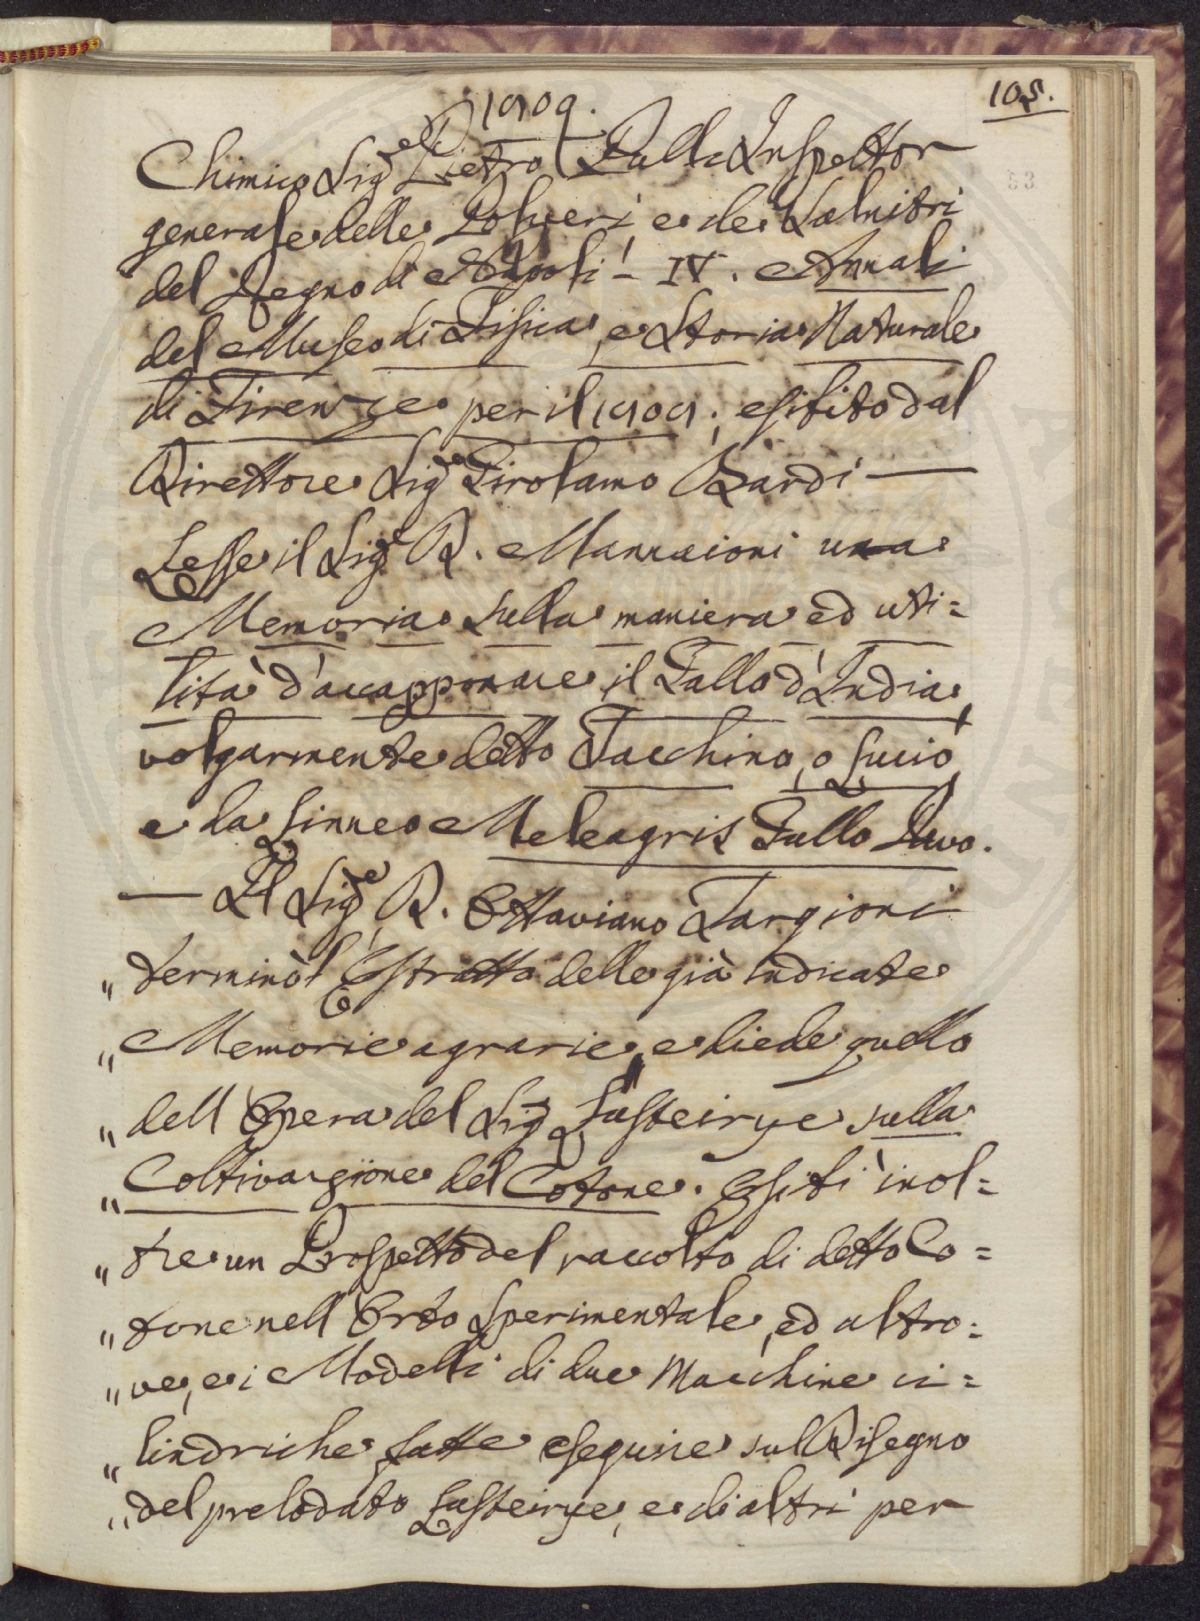 105.
1809.
Chimico Sig.re D. Pietro Pulli Inspettor
generale delle Polveri e de Salnitri
del Regno di Napoli! - IV. Annali
del Museo di Fisica, e Storia Naturale
di Firenze per il 1808; esibito dal
Direttore Sig.e Girolamo Bardi —
Lesse il Sig.e D. Mannaioni una
Memoria sulla maniera ed uti=
lità d'accapponare il Gallo d'India,
volgarmente detto Tacchino, o Lucio,
e da Linneo Meleagris Gallo Pavo.
— Il Sig.e D. Ottaviano Targioni
" terminò l'Estratto delle già indicate
" Memorie agrarie, e diede quello
" dell Opera del Sig.e Lasteirye sulla
" Coltivazione del Cotone. Esibì inol=
" tre un Prospetto del raccolto di detto Co=
" tone nell Orto Sperimentale, ed altro=
" ve, e i Modelli di due Macchine ci=
" lindriche fatte eseguire sul Disegno
" del prelodato Lasteirye, e di altri per